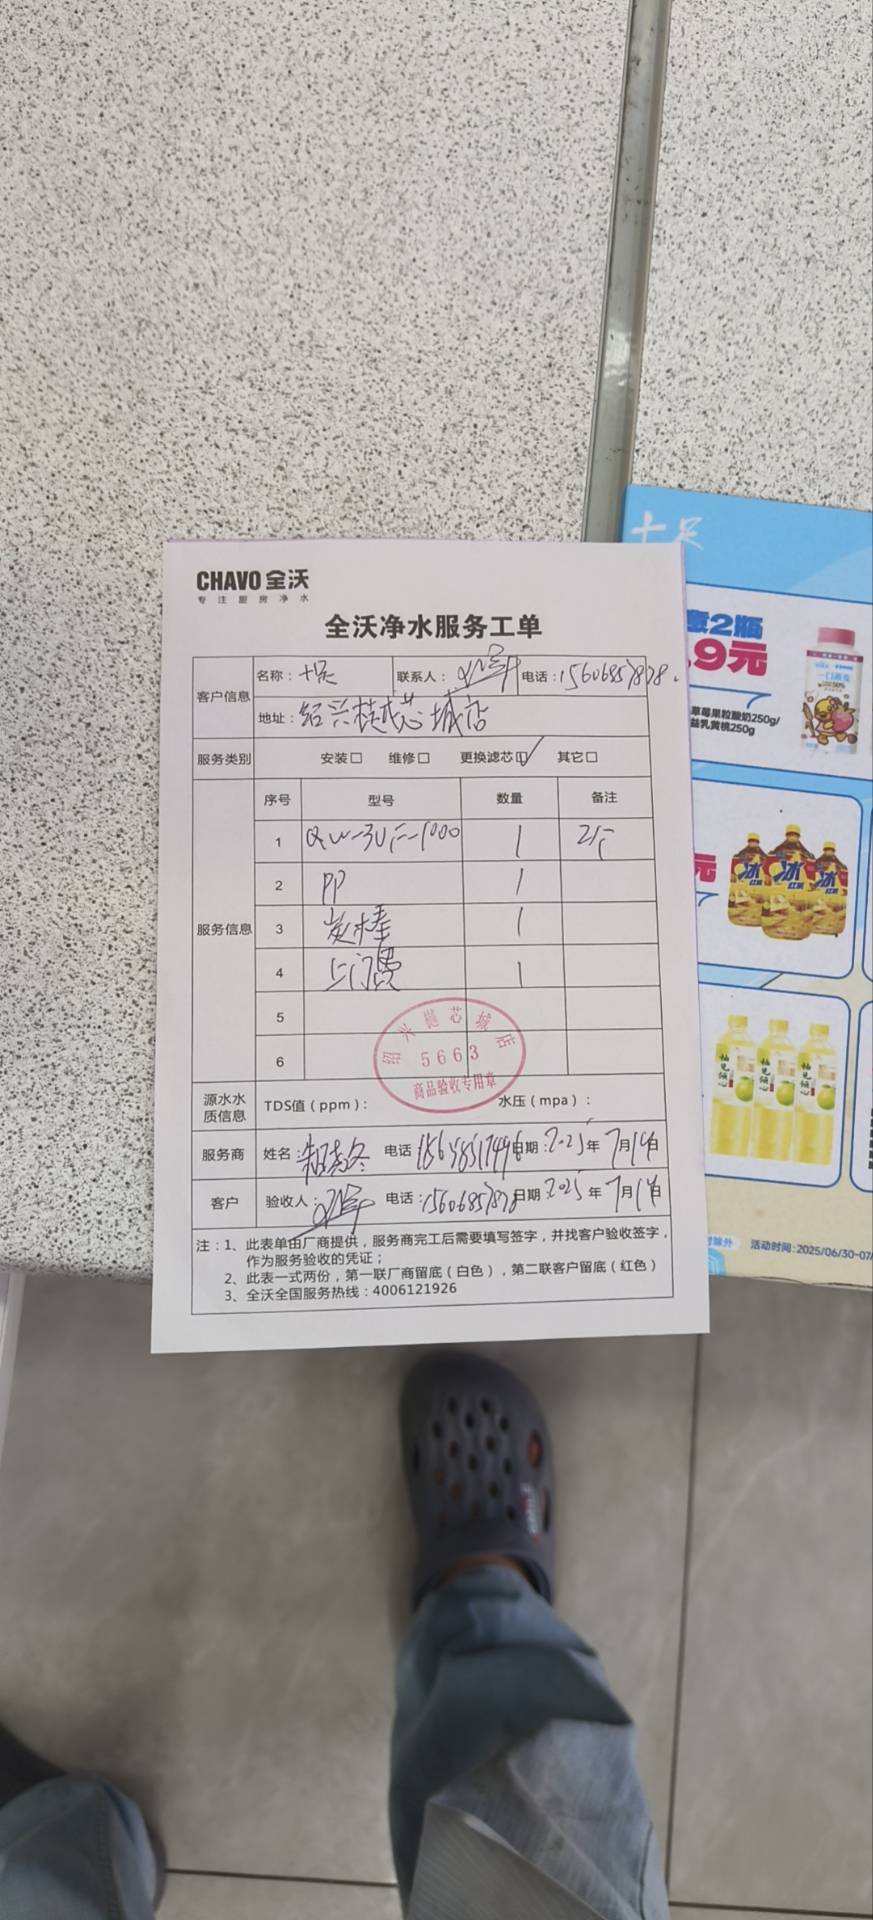 十足
CHAVO 全沃
专注厨房净水
全沃净水服务工单
意2瓶
.9元
草莓果粒酸奶250g/
益乳黄桃250g
客户信息 名称：十足 联系人： 电话：15606857878.
地址：绍兴越芯城店
服务类别 安装□ 维修□ 更换滤芯☑ 其它□
服务信息 序号 型号 数量 备注
1 QW-3UF-1000 1
2 PP 1
3 炭棒 1
4 上门费 1
5
6
绍兴越芯城店
5663
商品验收专用章
元
冰
红茶
冰
红茶
冰
红茶
源水水质信息 TDS值（ppm）： 水压（mpa）：
服务商 姓名： 电话 日期：2025年7月14日
客户 验收人： 电话：15606857878 日期：2025年7月14日
注：1、此表单由厂商提供，服务商完工后需要填写签字，并找客户验收签字，
作为服务验收的凭证；
2、此表一式两份，第一联厂商留底（白色），第二联客户留底（红色）
3、全沃全国服务热线：4006121926
除外 活动时间：2025/06/30-07/